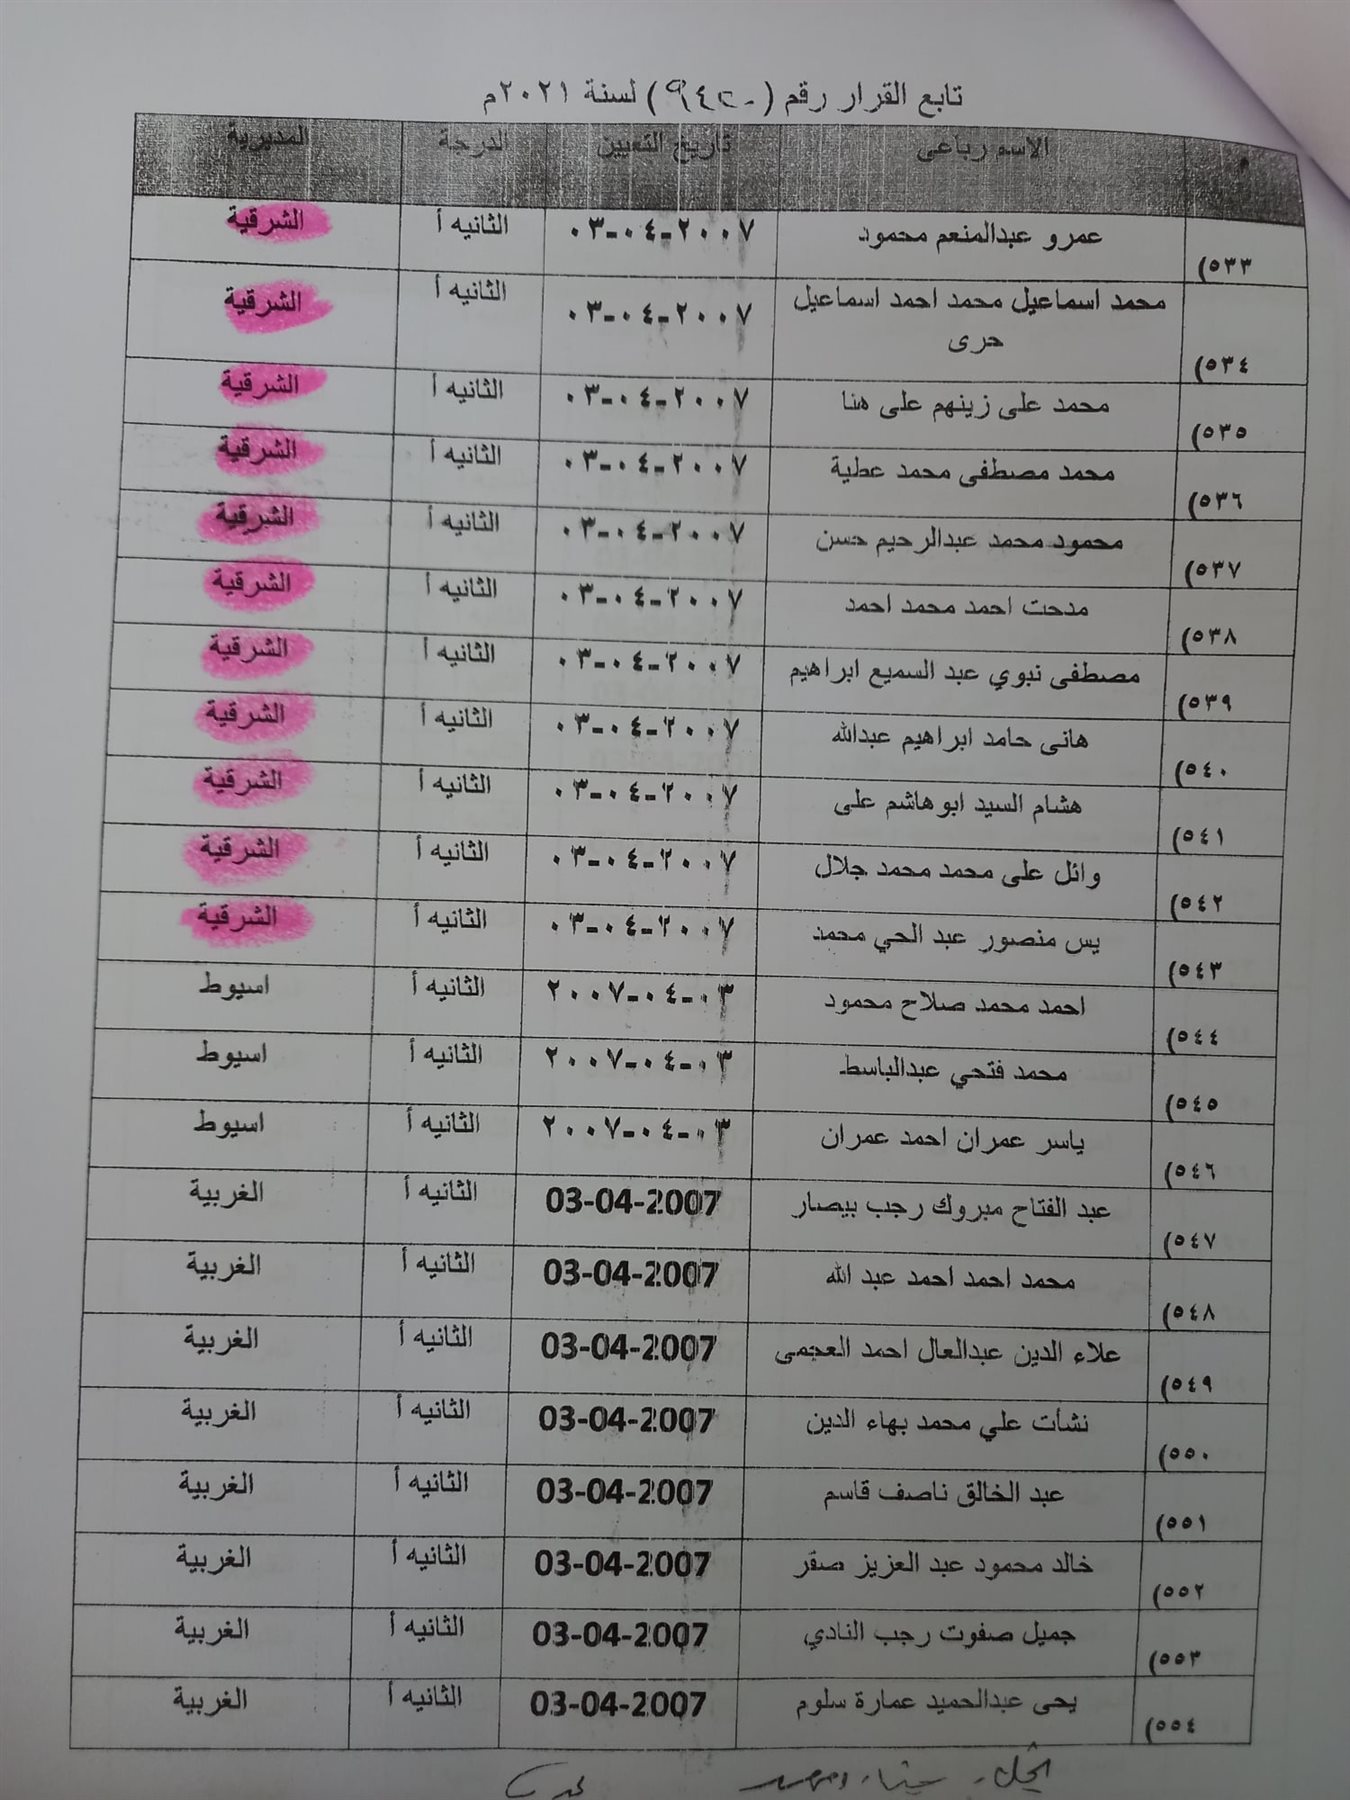 تابع القرار رقم (٩٤٢٠) لسنة ٢٠٢١م
م الاسم رباعى تاريخ التعيين الدرجة المديرية
٥٣٣) عمرو عبدالمنعم محمود ٢٠٠٧-٠٤-٠٣ الثانيه أ الشرقية
٥٣٤) محمد اسماعيل محمد احمد اسماعيل ٢٠٠٧-٠٤-٠٣ الثانيه أ الشرقية
حرى
٥٣٥) محمد على زينهم على هنا ٢٠٠٧-٠٤-٠٣ الثانيه أ الشرقية
٥٣٦) محمد مصطفى محمد عطية ٢٠٠٧-٠٤-٠٣ الثانيه أ الشرقية
٥٣٧) محمود محمد عبدالرحيم حسن ٢٠٠٧-٠٤-٠٣ الثانيه أ الشرقية
٥٣٨) مدحت احمد محمد احمد ٢٠٠٧-٠٤-٠٣ الثانيه أ الشرقية
٥٣٩) مصطفى نبوي عبد السميع ابراهيم ٢٠٠٧-٠٤-٠٣ الثانيه أ الشرقية
٥٤٠) هانى حامد ابراهيم عبدالله ٢٠٠٧-٠٤-٠٣ الثانيه أ الشرقية
٥٤١) هشام السيد ابوهاشم على ٢٠٠٧-٠٤-٠٣ الثانيه أ الشرقية
٥٤٢) وائل على محمد محمد جلال ٢٠٠٧-٠٤-٠٣ الثانيه أ الشرقية
٥٤٣) يس منصور عبد الحي محمد ٢٠٠٧-٠٤-٠٣ الثانيه أ الشرقية
٥٤٤) احمد محمد صلاح محمود ٠٣-٠٤-٢٠٠٧ الثانيه أ اسيوط
٥٤٥) محمد فتحي عبدالباسط ٠٣-٠٤-٢٠٠٧ الثانيه أ اسيوط
٥٤٦) ياسر عمران احمد عمران ٠٣-٠٤-٢٠٠٧ الثانيه أ اسيوط
٥٤٧) عبد الفتاح مبروك رجب بيصار 03-04-2007 الثانيه أ الغربية
٥٤٨) محمد احمد احمد عبد الله 03-04-2007 الثانيه أ الغربية
٥٤٩) علاء الدين عبدالعال احمد العجمى 03-04-2007 الثانيه أ الغربية
٥٥٠) نشأت علي محمد بهاء الدين 03-04-2007 الثانيه أ الغربية
٥٥١) عبد الخالق ناصف قاسم 03-04-2007 الثانيه أ الغربية
٥٥٢) خالد محمود عبد العزيز صقر 03-04-2007 الثانيه أ الغربية
٥٥٣) جميل صفوت رجب النادي 03-04-2007 الثانيه أ الغربية
٥٥٤) يحى عبدالحميد عمارة سلوم 03-04-2007 الثانيه أ الغربية